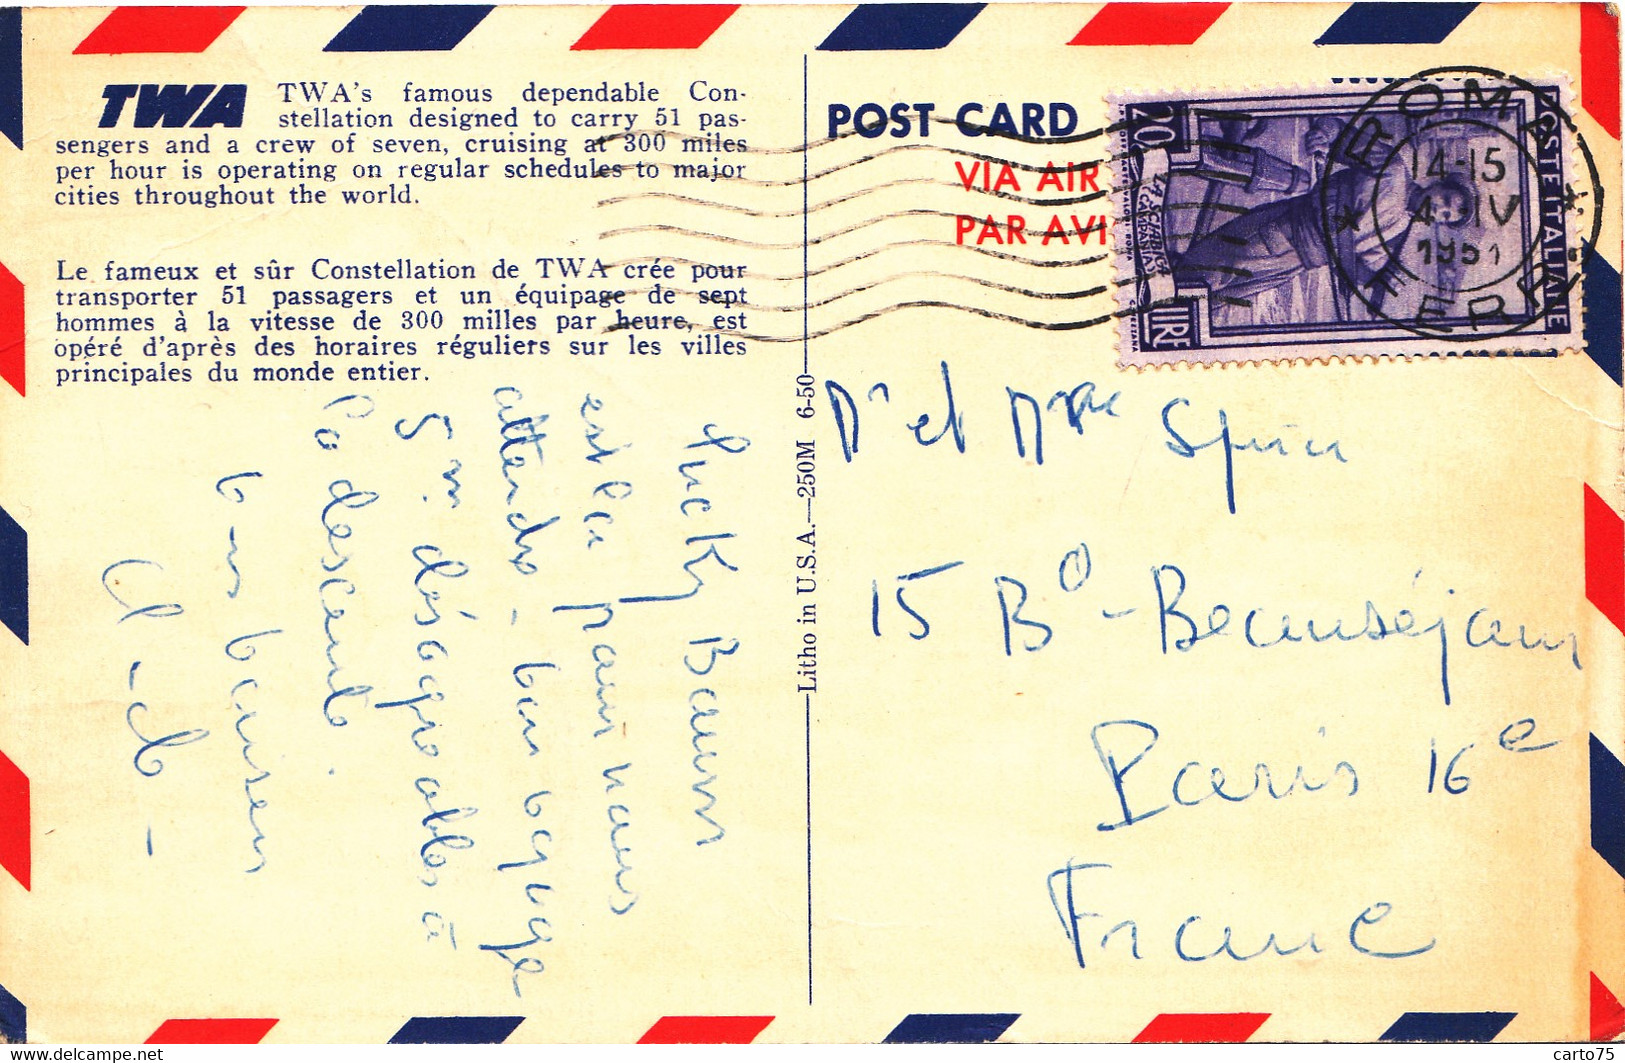 TWA TWA's famous dependable Con-
stellation designed to carry 51 pas-
sengers and a crew of seven, cruising at 300 miles
per hour is operating on regular schedules to major
cities throughout the world.
Le fameux et sûr Constellation de TWA crée pour
transporter 51 passagers et un équipage de sept
hommes à la vitesse de 300 milles par heure, est
opéré d'après des horaires réguliers sur les villes
principales du monde entier.
Lucky
est là pour nous
attendre - bon voyage
5 mn désagréables à
la descente.
bons baisers
Litho in U.S.A.—250M 6-50
POST CARD
VIA AIR
PAR AVI
20
LIRE
POSTE ITALIANE
LA SCIABICA
CAMPANIA
ROMA
14-15
4-IV
1951
Mr et Mme
15 Bd - Beauséjour
Paris 16e
France
www.delcampe.net
carto75